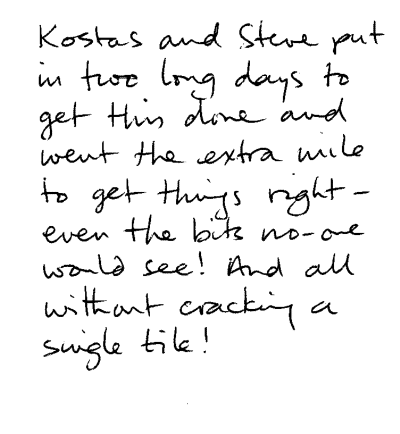 Kostas and Steve put
in two long days to
get this done and
went the extra mile
to get things right -
even the bits no-one
would see! And all
without cracking a
single tile!